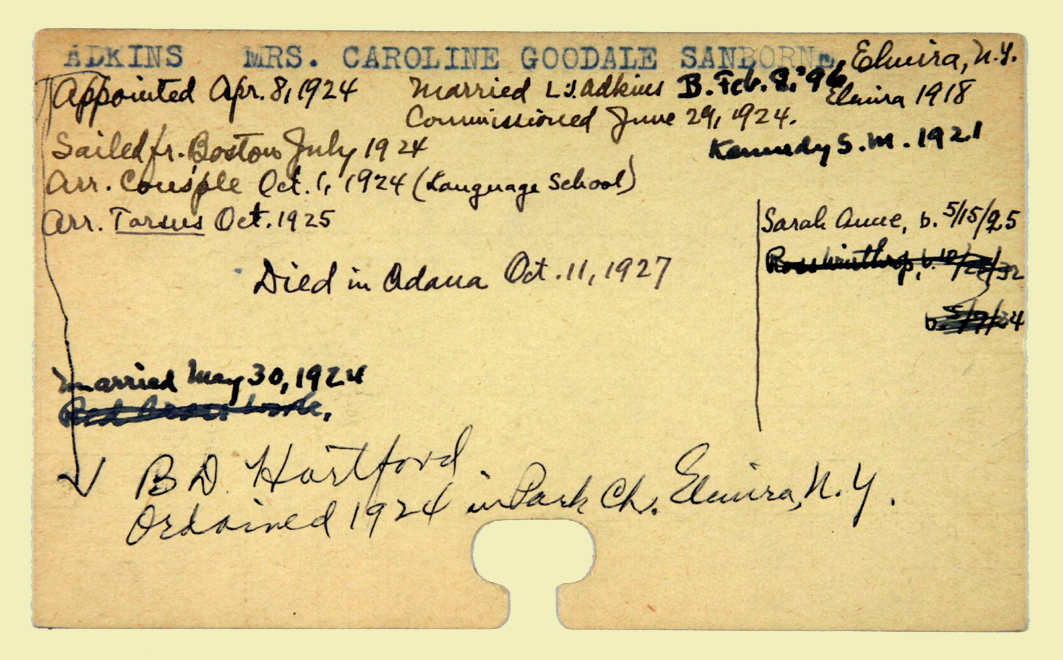 ADKINS MRS. CAROLINE GOODALE SANBORNE, Elmira, N.Y.
Appointed Apr. 8, 1924 Married L.J. Adkins B. Feb. 8, '96
Elmira 1918
Commissioned June 29, 1924.
Sailed fr. Boston July 1924
Kennedy S.M. 1921
Arr. Cons'ple Oct. 1, 1924 (Language School)
Arr. Tarsus Oct. 1925
Sarah Anne, b. 5/15/25
Ross Winthrop, b.
Died in Adana Oct. 11, 1927
b. 5/9/24
Married May 30, 1924
Red Cross Work.
B D. Hartford
Ordained 1924 in Park Ch. Elmira, N.Y.